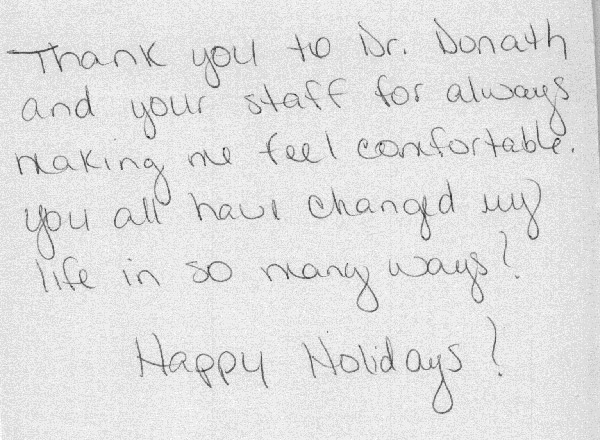 Thank you to Dr. Donath
and your staff for always
making me feel comfortable.
you all have changed my
life in so many ways!
Happy Holidays!